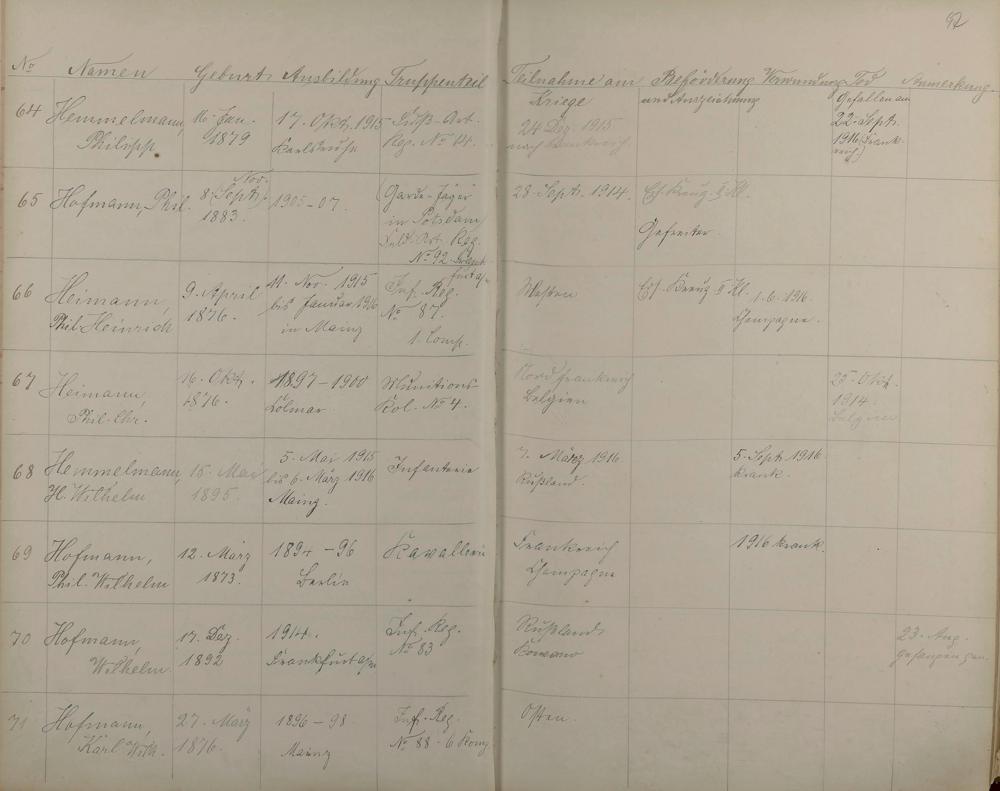 97
No Namen Geburt Ausbildung Truppenteil Teilnahme am Kriege Beförderung und Auszeichnung Verwundung Tod Anmerkung
64 Hemmelmann, Philipp 16. Jan. 1879 17. Okt. 1915 Karlsruhe Fuß-Art. Reg. No 14. 24 Dez. 1915 nach Frankreich. Gefallen am 22. Sept. 1916 (Frankreich)
65 Hofmann, Phil. 8. Nov. (Sept.) 1883. 1905-07. (Garde-Jäger in Potsdam) Feld-Art. Reg. No 92 Frankfurt a/M. 28. Sept. 1914. Eis. Kreuz II Kl. Gefreiter.
66 Heimann, Phil. Heinrich 9. April 1876. 11. Nov. 1915 bis Januar 1916 in Mainz Inf. Reg. No 87. 1. Comp. Westen Eis. Kreuz II Kl. 1.6.1916. Champagne.
67 Heimann, Phil. Chr. 16. Okt. 1876. 1897-1900 Colmar Munitions Kol. No 4. Nordfrankreich Belgien 25. Okt. 1914. Belgien
68 Hemmelmann, H. Wilhelm 15. Mai 1895. 5. Mai 1915 bis 6. März 1916 Mainz. Infanterie 7. März 1916 Rußland. 5. Sept. 1916 krank.
69 Hofmann, Phil. Wilhelm 12. März 1873. 1894-96 Berlin Kavallerie Frankreich Champagne 1916 krank.
70 Hofmann, Wilhelm 17. Dez. 1892 1914. Frankfurt a/M Inf. Reg. No 83 Rußland Kowno 23. Aug.
71 Hofmann, Karl Wilh. 27. März 1876. 1896-98 Mainz Inf. Reg. No 88 - 6 Komp Osten.